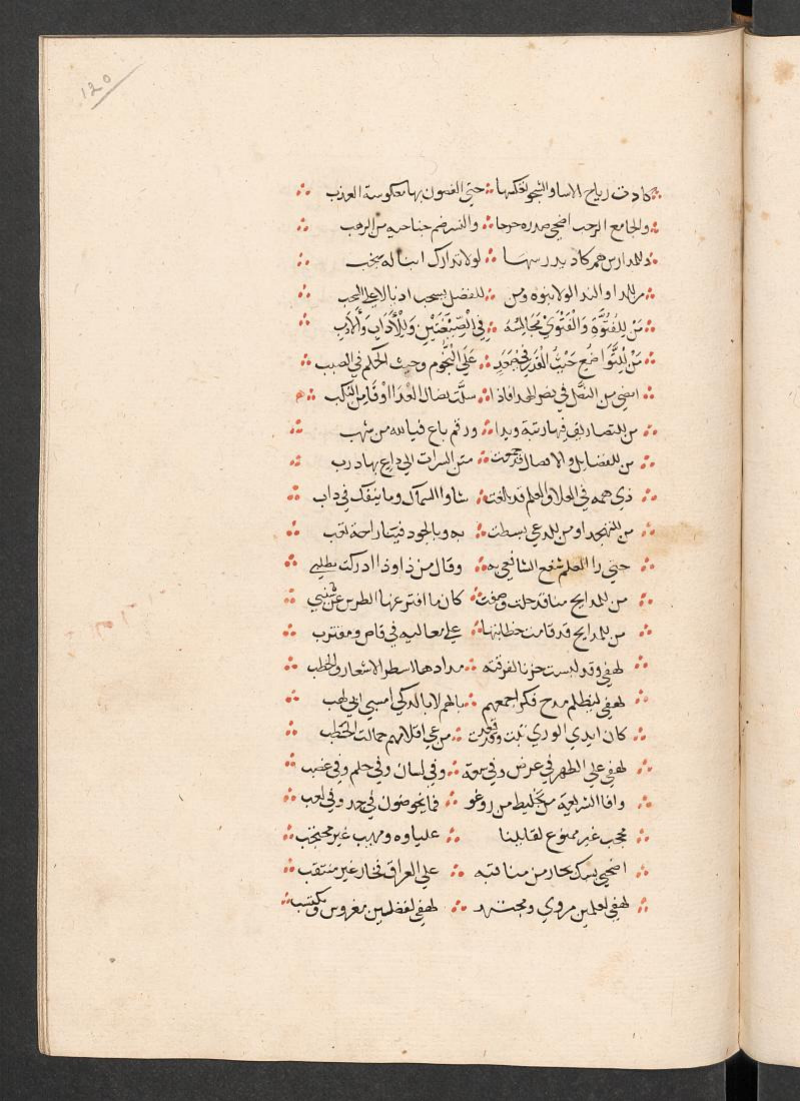 120
كادت رياح الاسا والشجو تعكسها حتي الغصون بها معكوسة العذب
والجامع الرحب اضحي صدره حرجا والنسر ضم جناحيه من الرهب
وللمدارس هم كاد يدرسها لولا تدارك ابناله نجب
من للهدا والندا لولا بنوه ومن للفضل يسحب اذيالا علي السحب
مَن لِلفُتُوَّةِ وَالْفَتْوَيْ مُجَانسَة فِي الصِّيغَتَيْنِ وَلِلْآدَابِ وَالْادَبِ
مَنْ لِلتَّوَاضُعِ حَيْثُ الْقَدْرُ فِي صُعُدٍ عَلَي النُّجُومِ وحيث الحكم في الصبب
امضي من النصل في نصر الهدا فاذا سلت نصال العدا اوقا من اليلب
من للتصانيف فيها رتبة وهدا ورقم باع فيالله من شهب
من للفضايل والافضال قد
ذي همه في العلا والعلم قد بلغت شاوا السماك وما ينفك في داب
من للتهجد او من للدعي بسطت به وبالجود فينا راحة تعب
حتي را العلم شفع الشافعي به وقال من ذا وذا ادركت مطلبي
من للمدايح فينا قد حلت وصفت كان ما افتر عنها الطرس عن شنبي
من للمدايح قد قامت خطابتها علي معاليه في قاص ومقترب
لهفي وقد لبست حزنا لفرقته مدادها اسطر الاشعار والخطب
لهفي لنظام مدح فكر اجمعهم بالهم لا بالذكي امسي ابي لهب
كان ايدي الوري تبت وقد من عي اقلامهم حمالت الحطب
لهفي علي الطهر في عرض وفي سمة وفي لسان وفي حلم وفي غضب
وافا الشريعة من تخليط من روغو فما يخوضون في جد وفي لعب
محجب غير ممنوع لقا بلنا علياوه ومهيب غير محتجب
اضحي لسبك فخار من مناقبه علي العراق فخار غير منتقب
لهفي لعلمين مروي ومجتهد لهفي لفضلين مغروس ومكتسب